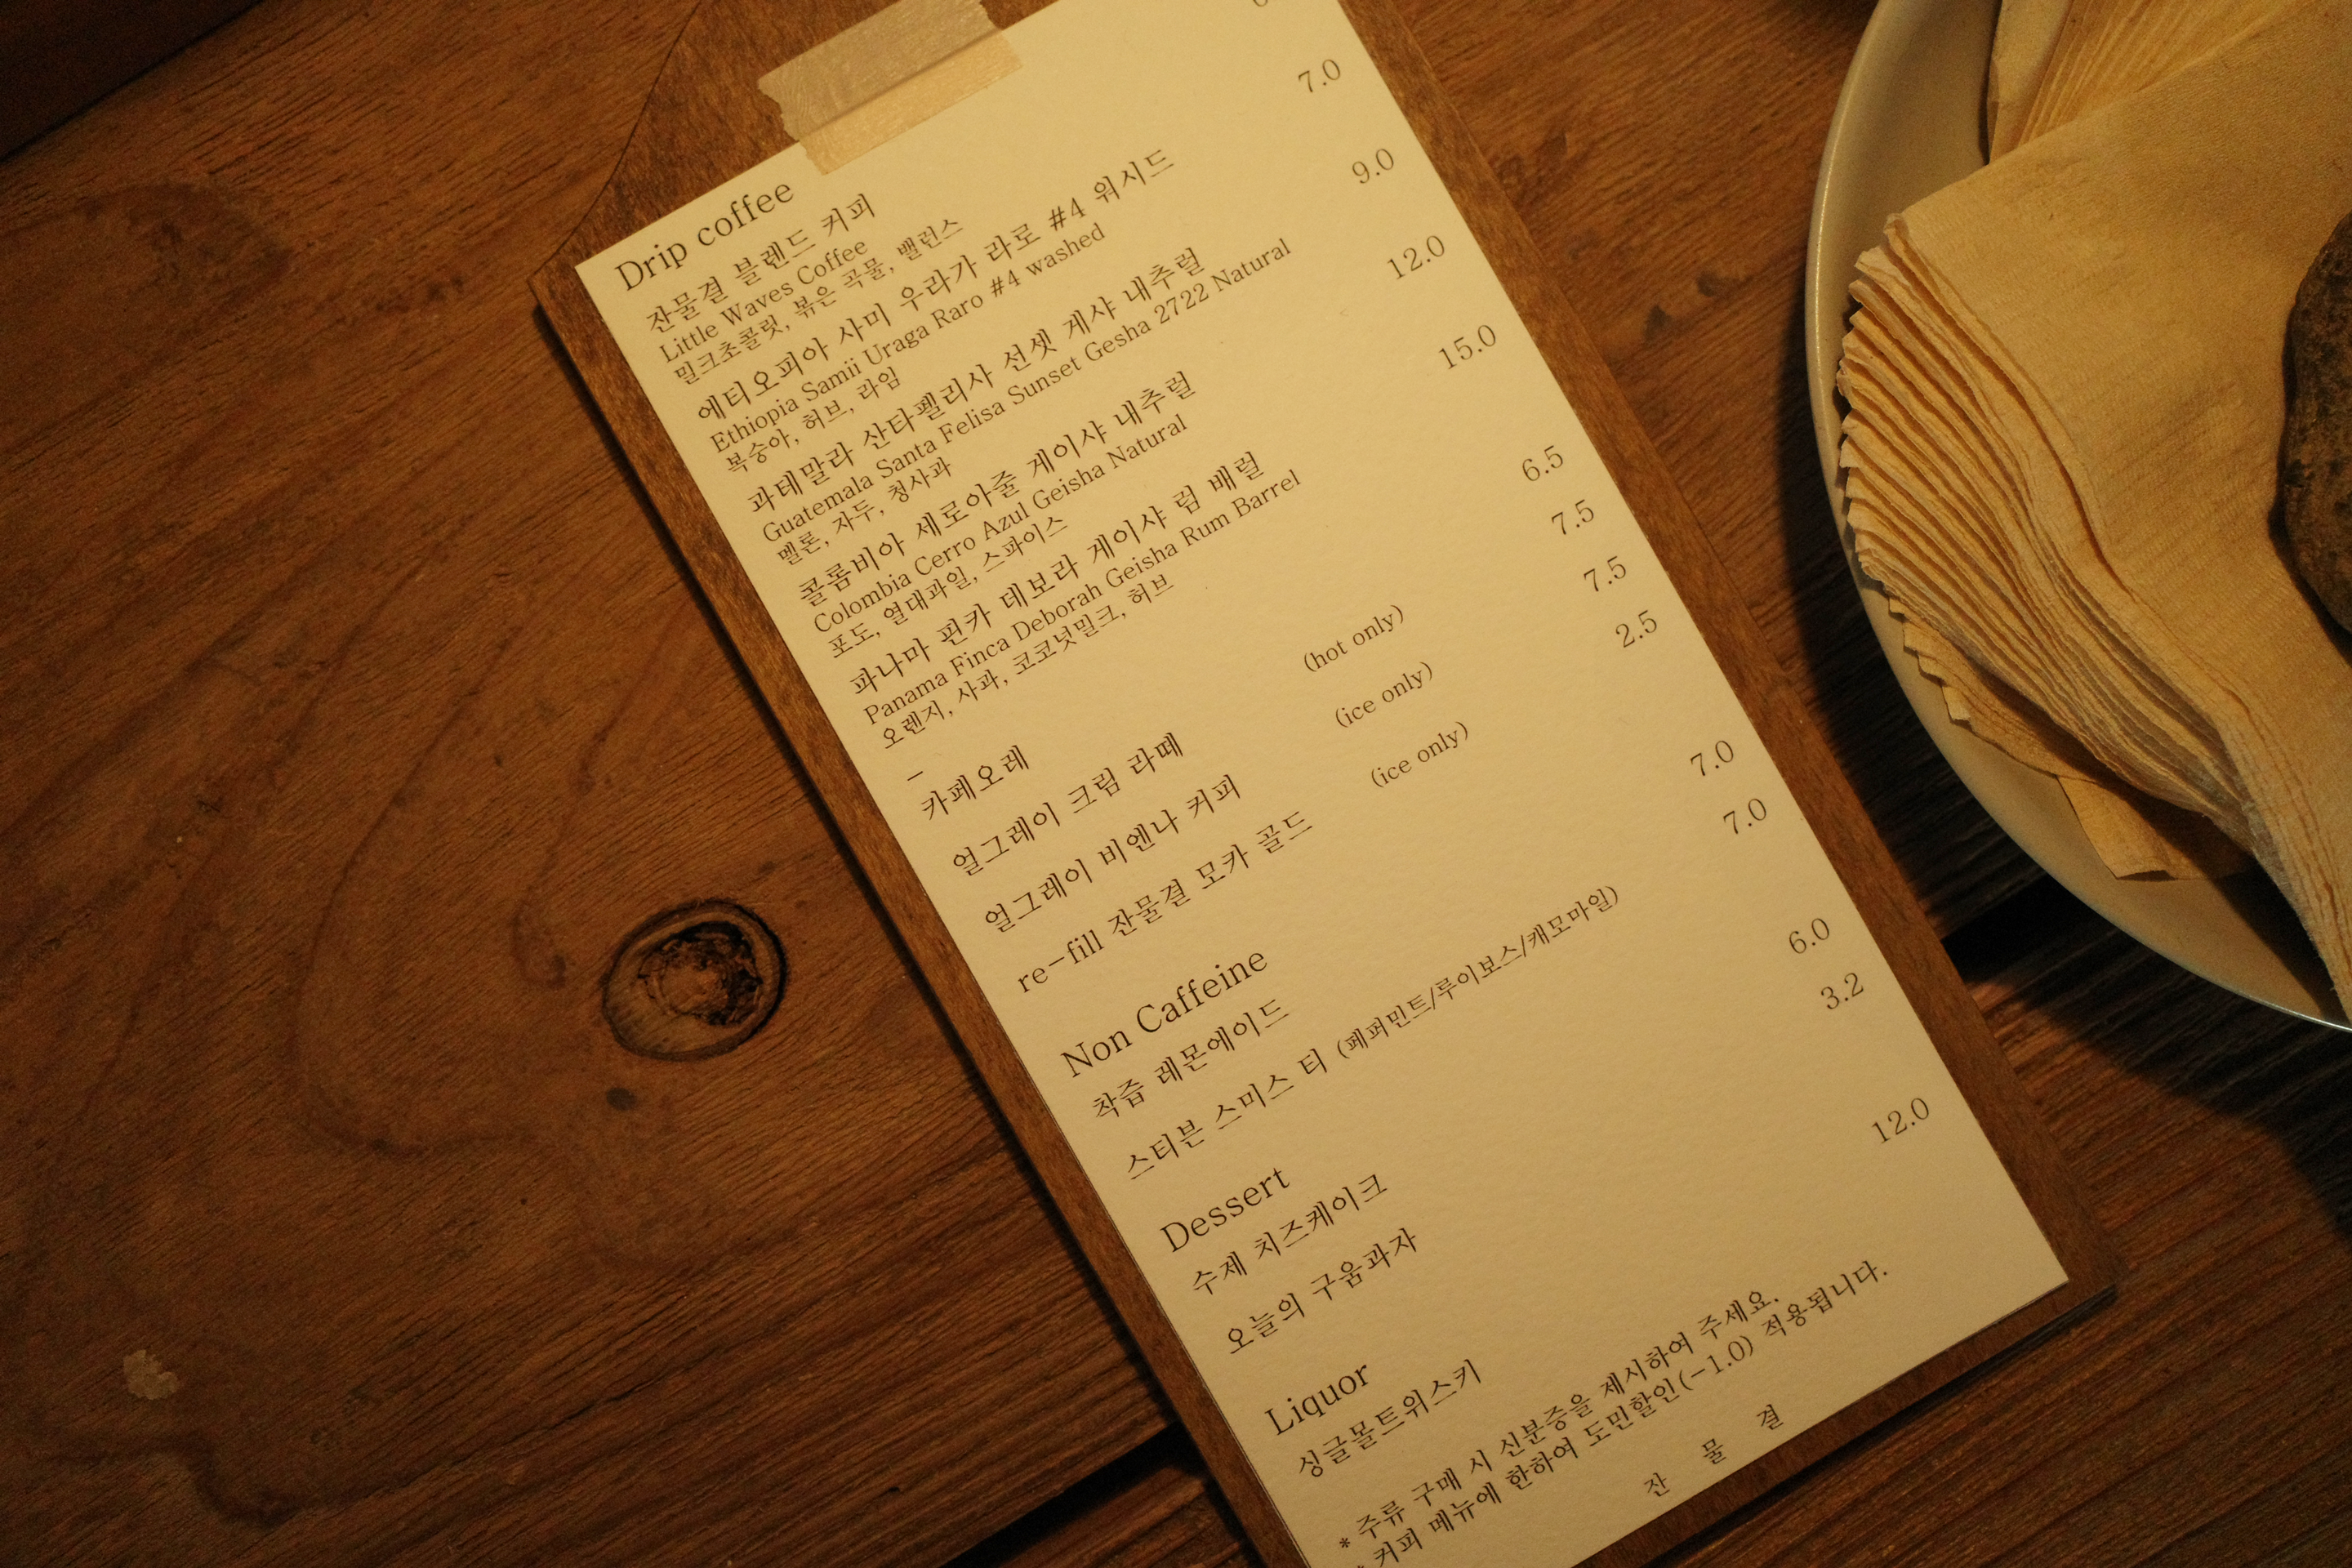 Drip coffee
잔물결 블렌드 커피
Little Waves Coffee
밀크초콜릿, 볶은 곡물, 밸런스
에티오피아 사미 우라가 라로 #4 워시드 7.0
Ethiopia Samii Uraga Raro #4 washed
복숭아, 허브, 라임
과테말라 산타펠리사 선셋 게샤 내추럴 9.0
Guatemala Santa Felisa Sunset Gesha 2722 Natural
멜론, 자두, 청사과
콜롬비아 세로아줄 게이샤 내추럴 12.0
Colombia Cerro Azul Geisha Natural
포도, 열대과일, 스파이스
파나마 핀카 데보라 게이샤 럼 배럴 15.0
Panama Finca Deborah Geisha Rum Barrel
오렌지, 사과, 코코넛밀크, 허브
–
카페오레 (hot only) 6.5
얼그레이 크림 라떼 (ice only) 7.5
얼그레이 비엔나 커피 (ice only) 7.5
re-fill 잔물결 모카 골드 2.5
Non Caffeine
착즙 레몬에이드 7.0
스티븐 스미스 티 (페퍼민트/루이보스/캐모마일) 7.0
Dessert
수제 치즈케이크 6.0
오늘의 구움과자 3.2
Liquor
싱글몰트위스키 12.0
* 주류 구매 시 신분증을 제시하여 주세요.
* 커피 메뉴에 한하여 도민할인(-1.0) 적용됩니다.
잔 물 결